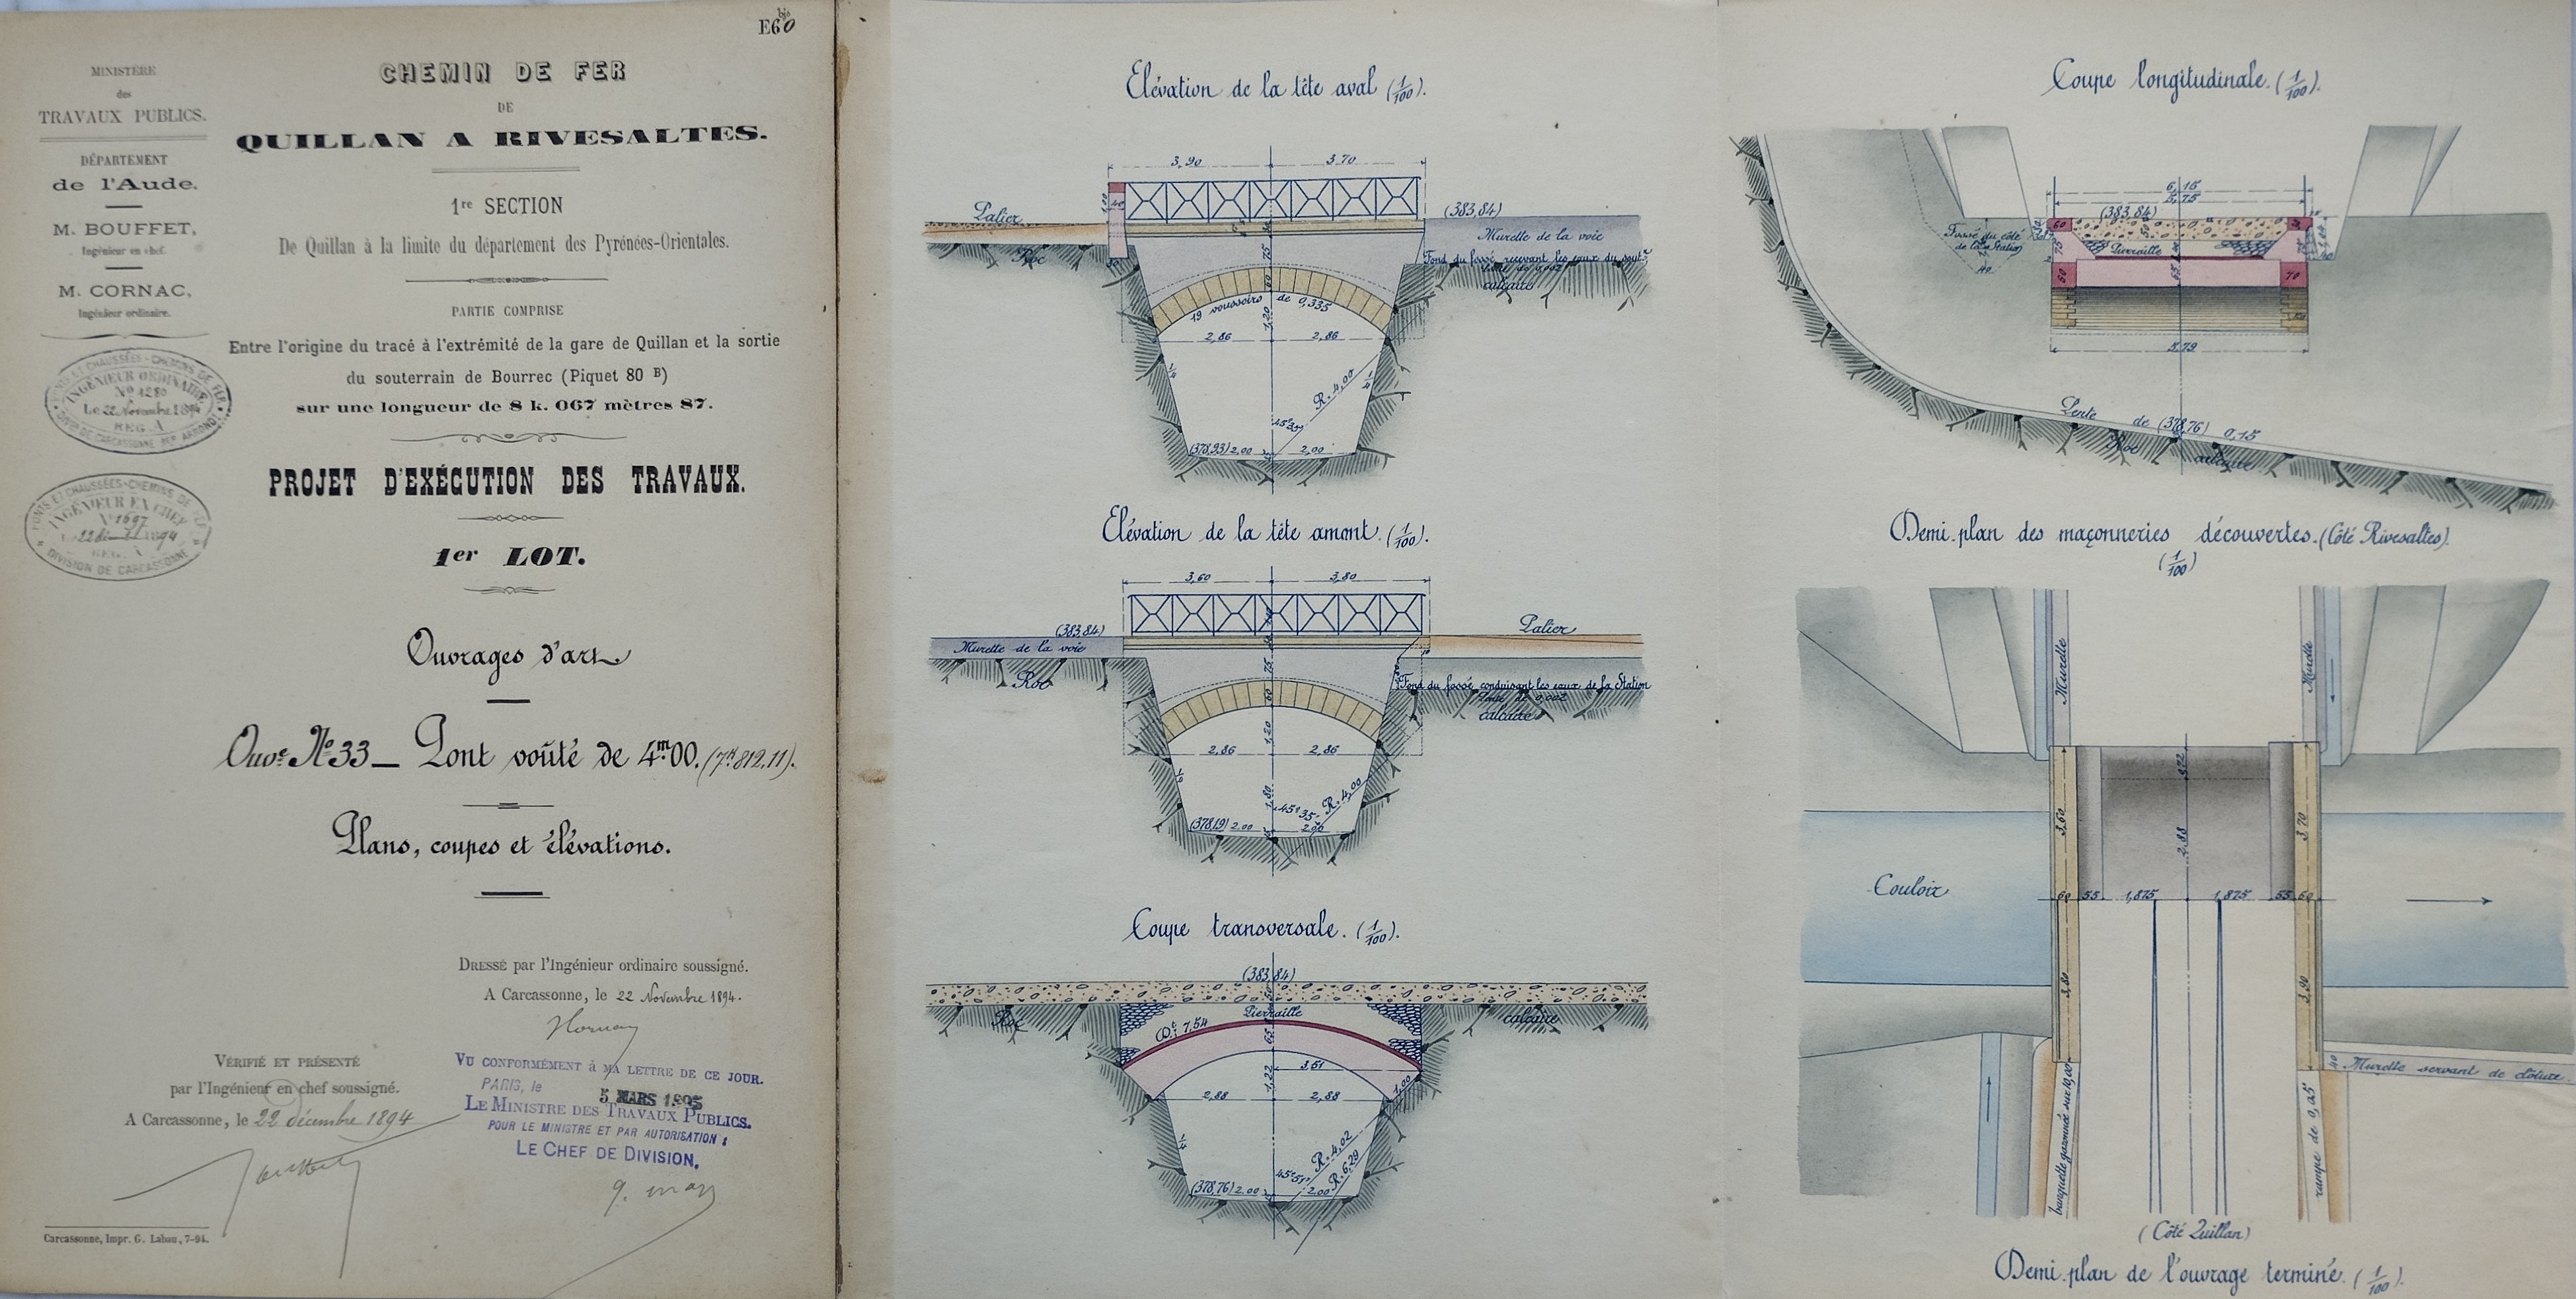 E60 bis
MINISTÈRE
des
TRAVAUX PUBLICS.
DÉPARTEMENT
de l'Aude.
M. BOUFFET,
Ingénieur en chef.
M. CORNAC,
Ingénieur ordinaire.
PONTS ET CHAUSSÉES - CHEMINS DE FER
INGÉNIEUR ORDINAIRE
No 1280
Le 22 Novembre 1894
REG. A
PONTS ET CHAUSSÉES - CHEMINS DE FER
INGÉNIEUR EN CHEF
No 1697
22 décembre 1894
REG. A
DIVISION DE CARCASSONNE
CHEMIN DE FER
DE
QUILLAN A RIVESALTES.
1re SECTION
De Quillan à la limite du département des Pyrénées-Orientales.
PARTIE COMPRISE
Entre l'origine du tracé à l'extrémité de la gare de Quillan et la sortie
du souterrain de Bourrec (Piquet 80 B)
sur une longueur de 8 k. 067 mètres 87.
PROJET D'EXÉCUTION DES TRAVAUX.
1er LOT.
Ouvrages d'art
Ouvge No 33 _ Pont voûté de 4m00. (7k812.11).
Plans, coupes et élévations.
DRESSÉ par l'Ingénieur ordinaire soussigné.
A Carcassonne, le 22 Novembre 1894.
VÉRIFIÉ ET PRÉSENTÉ
par l'Ingénieur en chef soussigné.
A Carcassonne, le 22 décembre 1894
VU CONFORMÉMENT à MA LETTRE DE CE JOUR.
PARIS, le
5 MARS 1895
LE MINISTRE DES TRAVAUX PUBLICS.
POUR LE MINISTRE ET PAR AUTORISATION :
LE CHEF DE DIVISION,
Carcassonne, Impr. G. Laban, 7-94.
Elévation de la tête aval (1/100).
3,90 3,70
Palier
(383,84)
Murette de la voie
Roc
Fond du fossé recevant les eaux du soutn
calcaire
75
60
19 voussoirs de 0,335
1,20
2,86 2,86
1/4
R. 4,00
1/4
(378,93) 2,00 2,00
Elévation de la tête amont. (1/100).
3,60 3,80
(383,84)
Palier
Murette de la voie
Roc
75
Fond du fossé conduisant les eaux de la Station
Pente de 0,002
calcaire
60
1,20
2,86 2,86
1,80
45° 35'
R. 4,00
(378,19) 2.00 2,00
Coupe transversale. (1/100).
(383,84)
Roc
Pierraille
calcaire
7,54
65
3,61
1,22
1,00
2,88 2,88
1/4
R. 4,02
R. 6,29
45° 51'
(378,76) 2.00 2.00
Coupe longitudinale. (1/100).
6,15
5,75
(383,84)
Fossé du côté
de la Station
60
75
Pierraille
80
65
70
5,79
Pente de (378,76) 0,15
Roc calcaire
Demi-plan des maçonneries découvertes. (Côté Rivesaltes).
(1/100)
Murette
Murette
3,60
2,88
3,70
Couloir
60 55 1,875 1,875 55 60
3,80
3,90
40
Murette servant de clôture
banquette gazonnée sur 10,00
rampe de 0,25
(Côté Quillan)
Demi-plan de l'ouvrage terminé. (1/100).